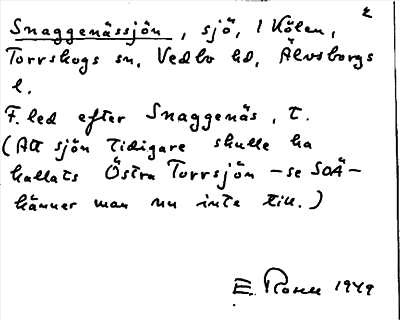 Snaggenässjön, sjö, i Kölen,
Torrskogs sn, Vedbo hd, Älvsborgs
l.
F. led efter Snaggenäs, t.
(Att sjön tidigare skulle ha
kallats Östra Torrsjön – se SOÄ –
känner man nu inte till.)
E. Rosell 1949